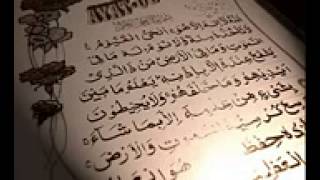 AYAT-UL
الله لا إله إلا هو الحي القيوم لا
تأخذه سنة ولا نوم له ما في
السموت وما في الأرض من ذا الذي
يشفع عنده إلا بإذنه يعلم ما بين
أيديهم وما خلفهم ولا يحيطون
بشيء من علمه إلا بما شاء
وسع كرسيه السموت والأرض
حفظ هو